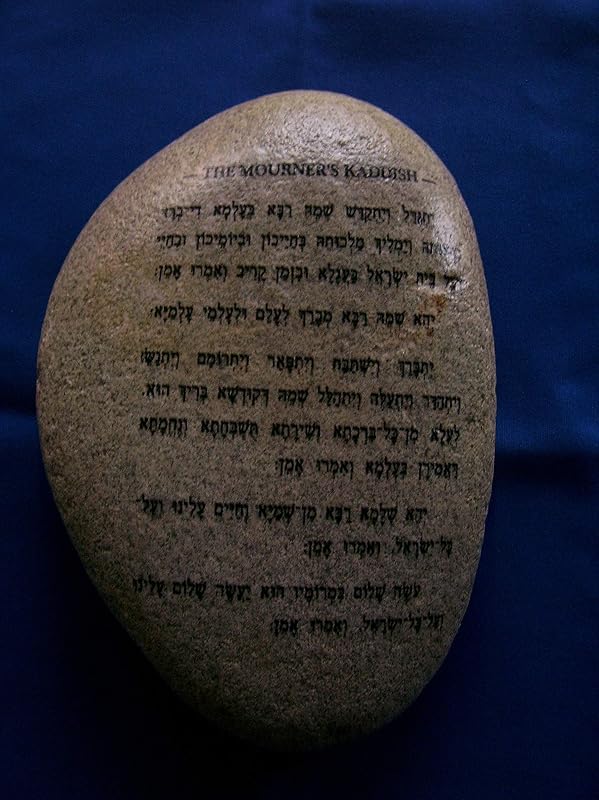 — THE MOURNER'S KADDISH —
יִתְגַּדַּל וְיִתְקַדַּשׁ שְׁמֵהּ רַבָּא בְּעָלְמָא דִּי־בְרָא
וְיַמְלִיךְ מַלְכוּתֵהּ בְּחַיֵּיכוֹן וּבְיוֹמֵיכוֹן וּבְחַיֵּי
בֵּית יִשְׂרָאֵל בַּעֲגָלָא וּבִזְמַן קָרִיב וְאִמְרוּ אָמֵן:
יְהֵא שְׁמֵהּ רַבָּא מְבָרַךְ לְעָלַם וּלְעָלְמֵי עָלְמַיָּא:
יִתְבָּרַךְ וְיִשְׁתַּבַּח וְיִתְפָּאַר וְיִתְרוֹמַם וְיִתְנַשֵּׂא
וְיִתְהַדַּר וְיִתְעַלֶּה וְיִתְהַלַּל שְׁמֵהּ דְּקוּדְשָׁא בְּרִיךְ הוּא.
לְעֵלָּא מִן־כָּל־בִּרְכָתָא וְשִׁירָתָא תֻּשְׁבְּחָתָא וְנֶחֱמָתָא
דַּאֲמִירָן בְּעָלְמָא וְאִמְרוּ אָמֵן:
יְהֵא שְׁלָמָא רַבָּא מִן־שְׁמַיָּא וְחַיִּים עָלֵינוּ וְעַל־
כָּל־יִשְׂרָאֵל. וְאִמְרוּ אָמֵן:
עֹשֶׂה שָׁלוֹם בִּמְרוֹמָיו הוּא יַעֲשֶׂה שָׁלוֹם עָלֵינוּ
וְעַל־כָּל־יִשְׂרָאֵל. וְאִמְרוּ אָמֵן: